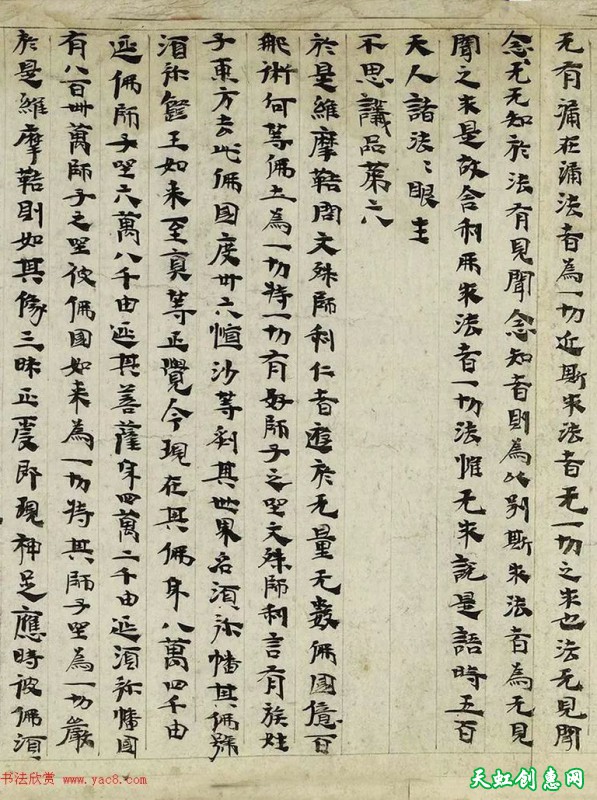 无有痛在痛法者為一切近斯求法者无一切之求也法无見聞
念无无知於法有見聞念知者則為以別斯求法者為无見
聞之求是故舍利弗求法者一切法惟无求說是語時五百
天人諸法〻眼生
不思議品第六
於是維摩鞊問文殊師利仁者遊於无量无數佛國億百
那術何等佛土為一切特一切有好師子之坐文殊師利言有族姓
子東方去此佛國度卅六恒沙等刹其世界名須弥幡其佛號
須弥燈王如来至真等正覺今現在其佛身八萬四千由
延佛師子坐六萬八千由延其菩薩身四萬二千由延須弥幡國
有八百卌萬師子之坐彼佛國如来為一切特其師子坐為一切嚴
於是維摩鞊則如其像三昧正受即現神足應時彼佛須
书法欣赏 www.yac8.com
天虹创惠网